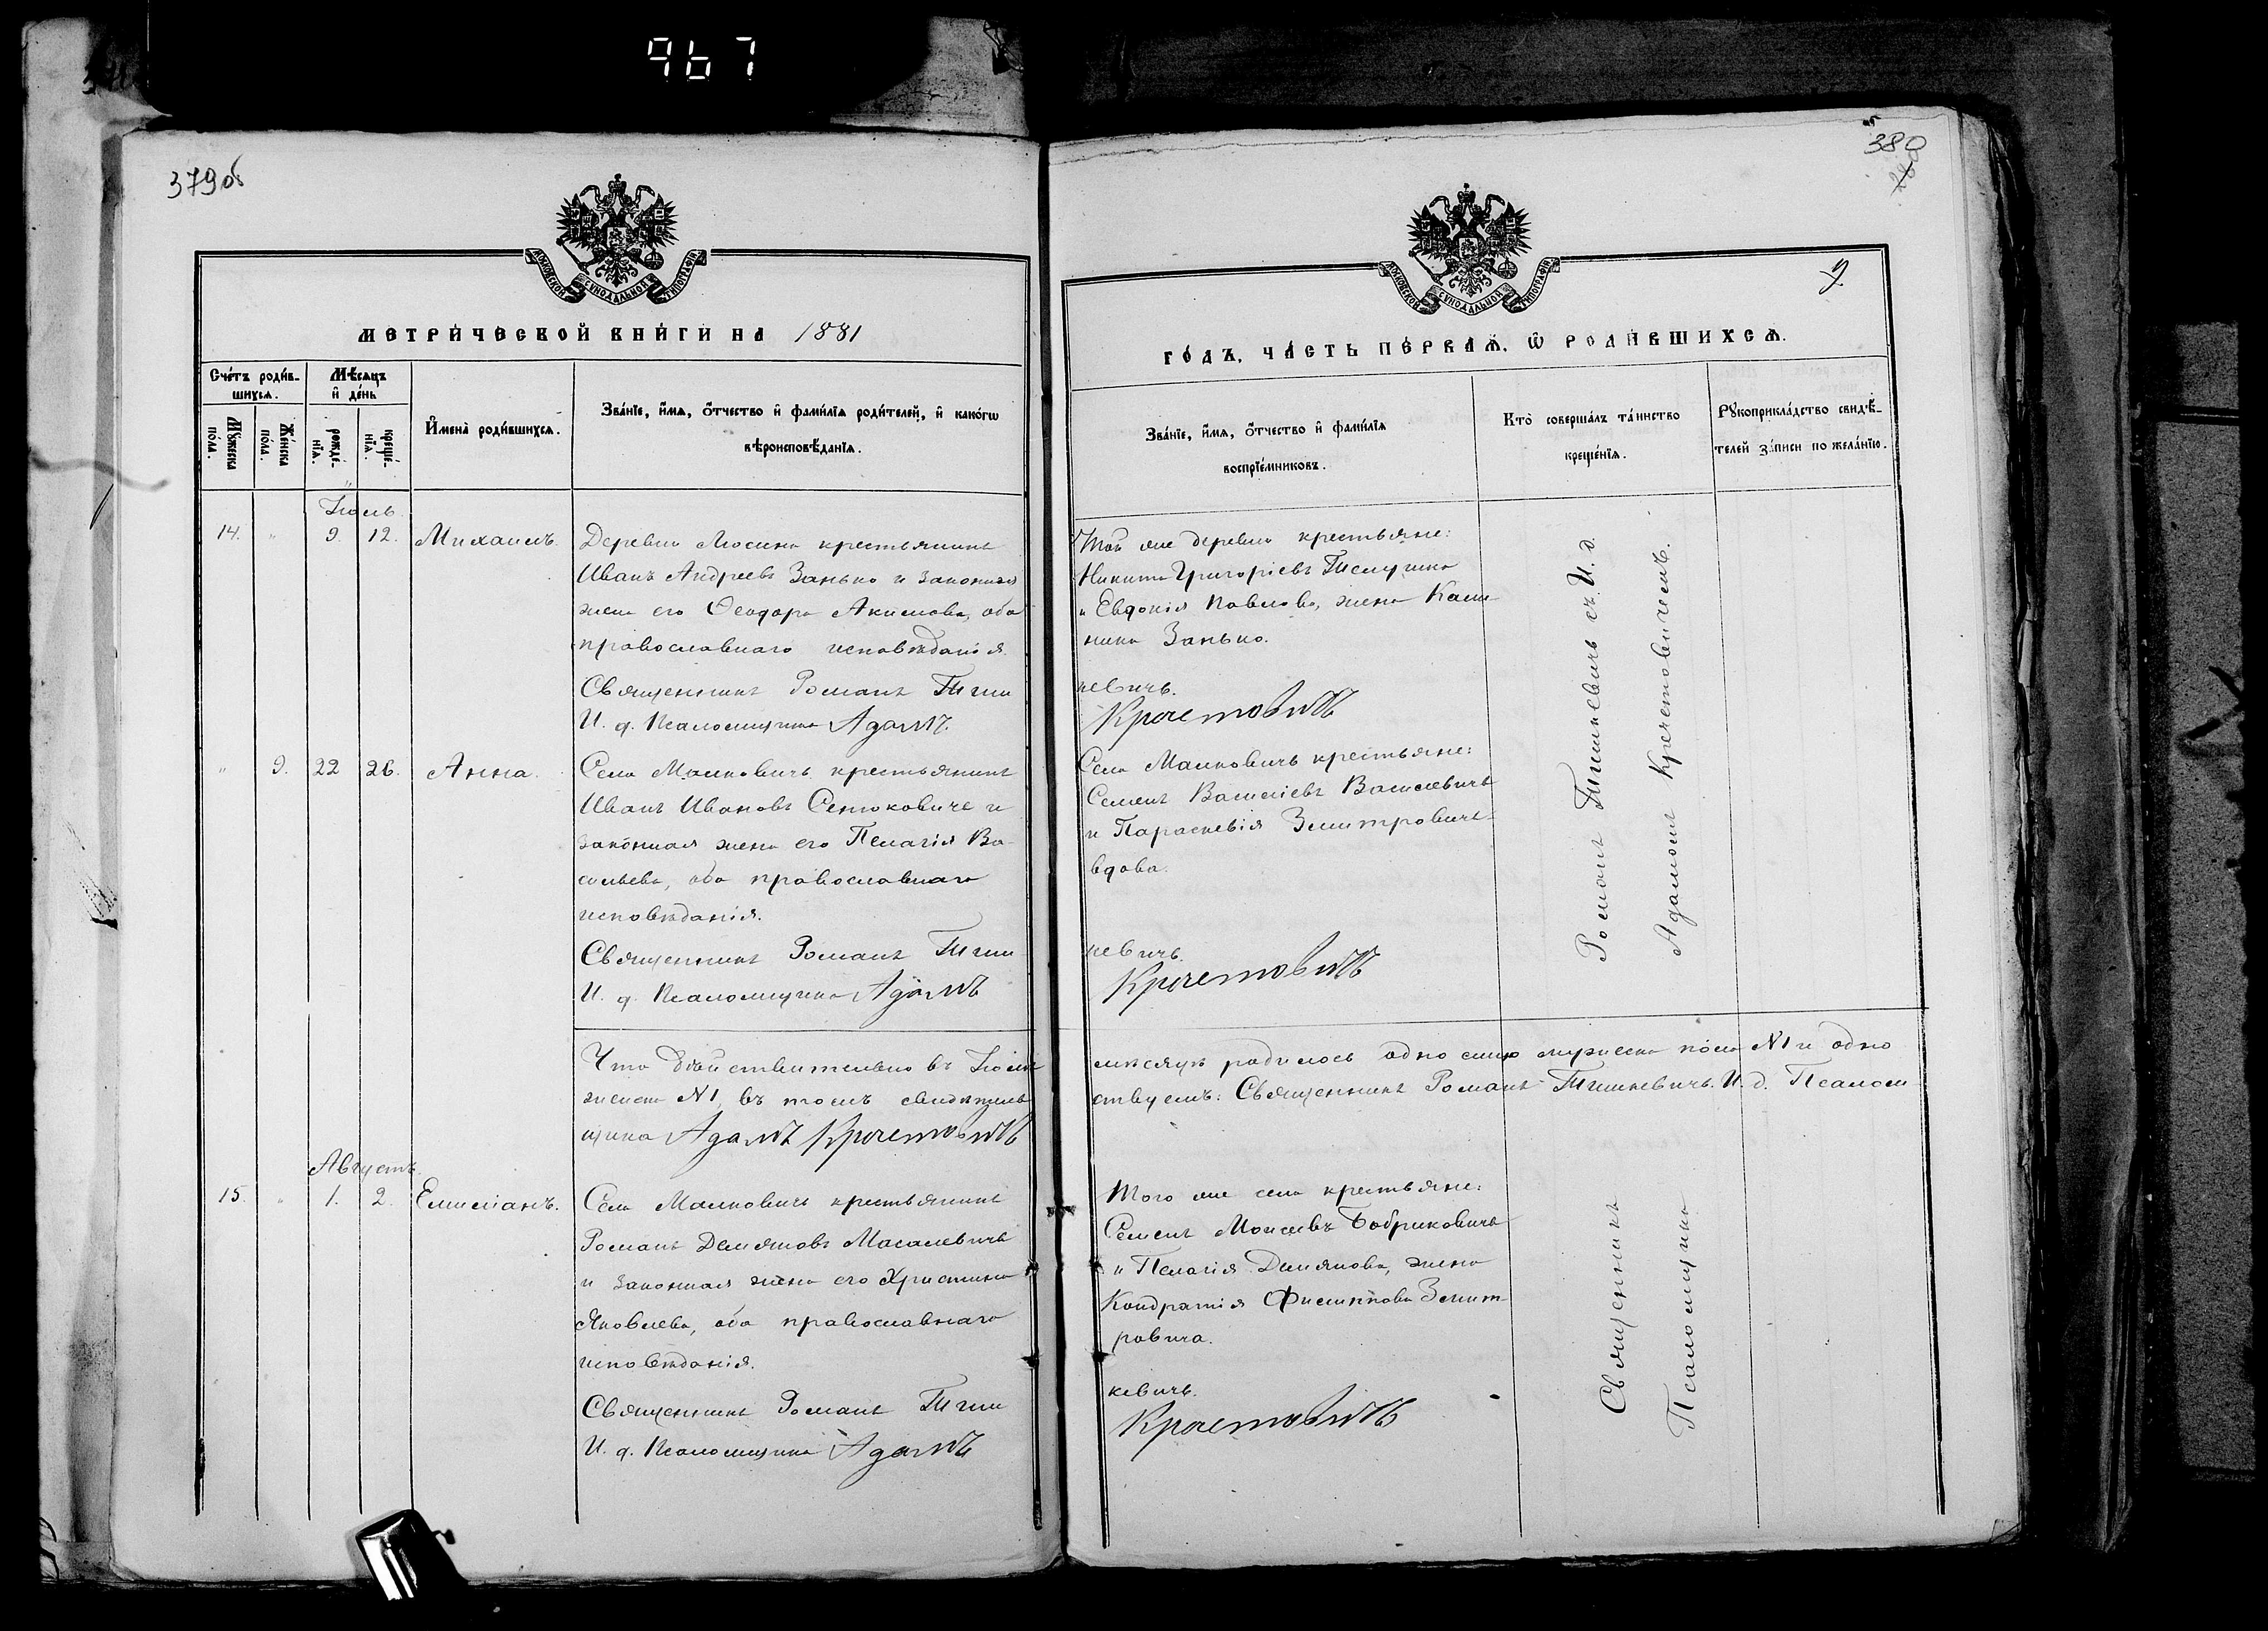 967
379об
380
9
МОСКОВСКОЙ СУНОДАЛЬНОЙ ТИПОГРАФІИ
МЕТРИ́ЧЕСКОЙ КНИ́ГИ НА 1881
Сче́тъ роди́в-
шихсѧ.
Мѣ́сѧцъ
и҆ де́нь
Мꙋ́жеска
по́ла.
Же́нска
по́ла.
рожде́-
нїѧ.
креще́-
нїѧ.
И҆мена̀ роди́вшихсѧ.
Зва́нїе, и҆́мѧ, ѻ҆́тчество и҆ фами́лїѧ роди́телей, и҆ како́гѡ
вѣроисповѣ́данїѧ.
Іюль
14. " 9. 12. Михаилъ.
Деревни Люсина крестьянинъ
Иванъ Андреевъ Занько и законная
жена его Ѳеодора Акимова, оба
православнаго исповѣданія.
Священникъ Романъ Тиш
И. д. Псаломщика Адамъ
" 9. 22 26. Анна.
Села Малковичъ крестьянинъ
Иванъ Ивановъ Сенюковичъ и
законная жена его Пелагія Ва-
сильева, оба православнаго
исповѣданія.
Священникъ Романъ Тиш
И. д. Псаломщика Адамъ
Что дѣйствительно въ Іюлѣ
женска №1, въ томъ свидѣтель
щика Адамъ Кречетовичъ
Августъ.
15. " 1. 2. Емиліанъ.
Села Малковичъ крестьянинъ
Романъ Демяновъ Масалевичъ
и законная жена его Христина
Яковлева, оба православнаго
исповѣданія.
Священникъ Романъ Тиш
И. д. Псаломщика Адамъ
МОСКОВСКОЙ СУНОДАЛЬНОЙ ТИПОГРАФІИ
ГО́ДЪ, ЧА́СТЬ ПЕ́РВАѦ, Ѽ РОДИ́ВШИХСѦ.
Зва́нїе, и҆́мѧ, ѻ҆́тчество и҆ фами́лїѧ
воспрїе́мниковъ.
Кто̀ соверша́лъ та́инство
креще́нїѧ.
Рꙋкоприкла́дство свидѣ́-
телей за́писи по жела́нїю.
Той же деревни крестьяне:
Никита Григоріевъ
и Евдокія Павлова, жена Кали
ника Занько.
кевичъ.
Кречетовичъ
Села Малковичъ крестьяне:
Семенъ Василіевъ Василевичъ
и Параскевія Змитровичъ
вдова.
кевичъ.
Кречетовичъ
Романъ Тишкевичъ съ И. д.
Адамомъ Кречетовичемъ.
мѣсяцѣ родилось одно мужеска пола №1 и одно
ствуемъ: Священникъ Романъ Тишкевичъ. И. д. Псалом
Того же села крестьяне:
Семенъ Моисеевъ Бобриковичъ
и Пелагія Демянова, жена
Кондратія Филиппова Змит-
ровича.
кевичъ.
Кречетовичъ
Священникъ
Псаломщика